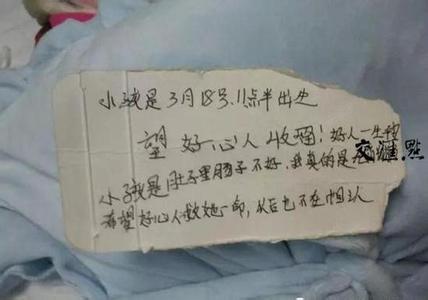 小孩是3月18号.11点半出生
望 好心人收留！好人一生
交汇点
小孩是肚子里肠子不好，我真的是
希望好心人救她一命，从后也不在相认